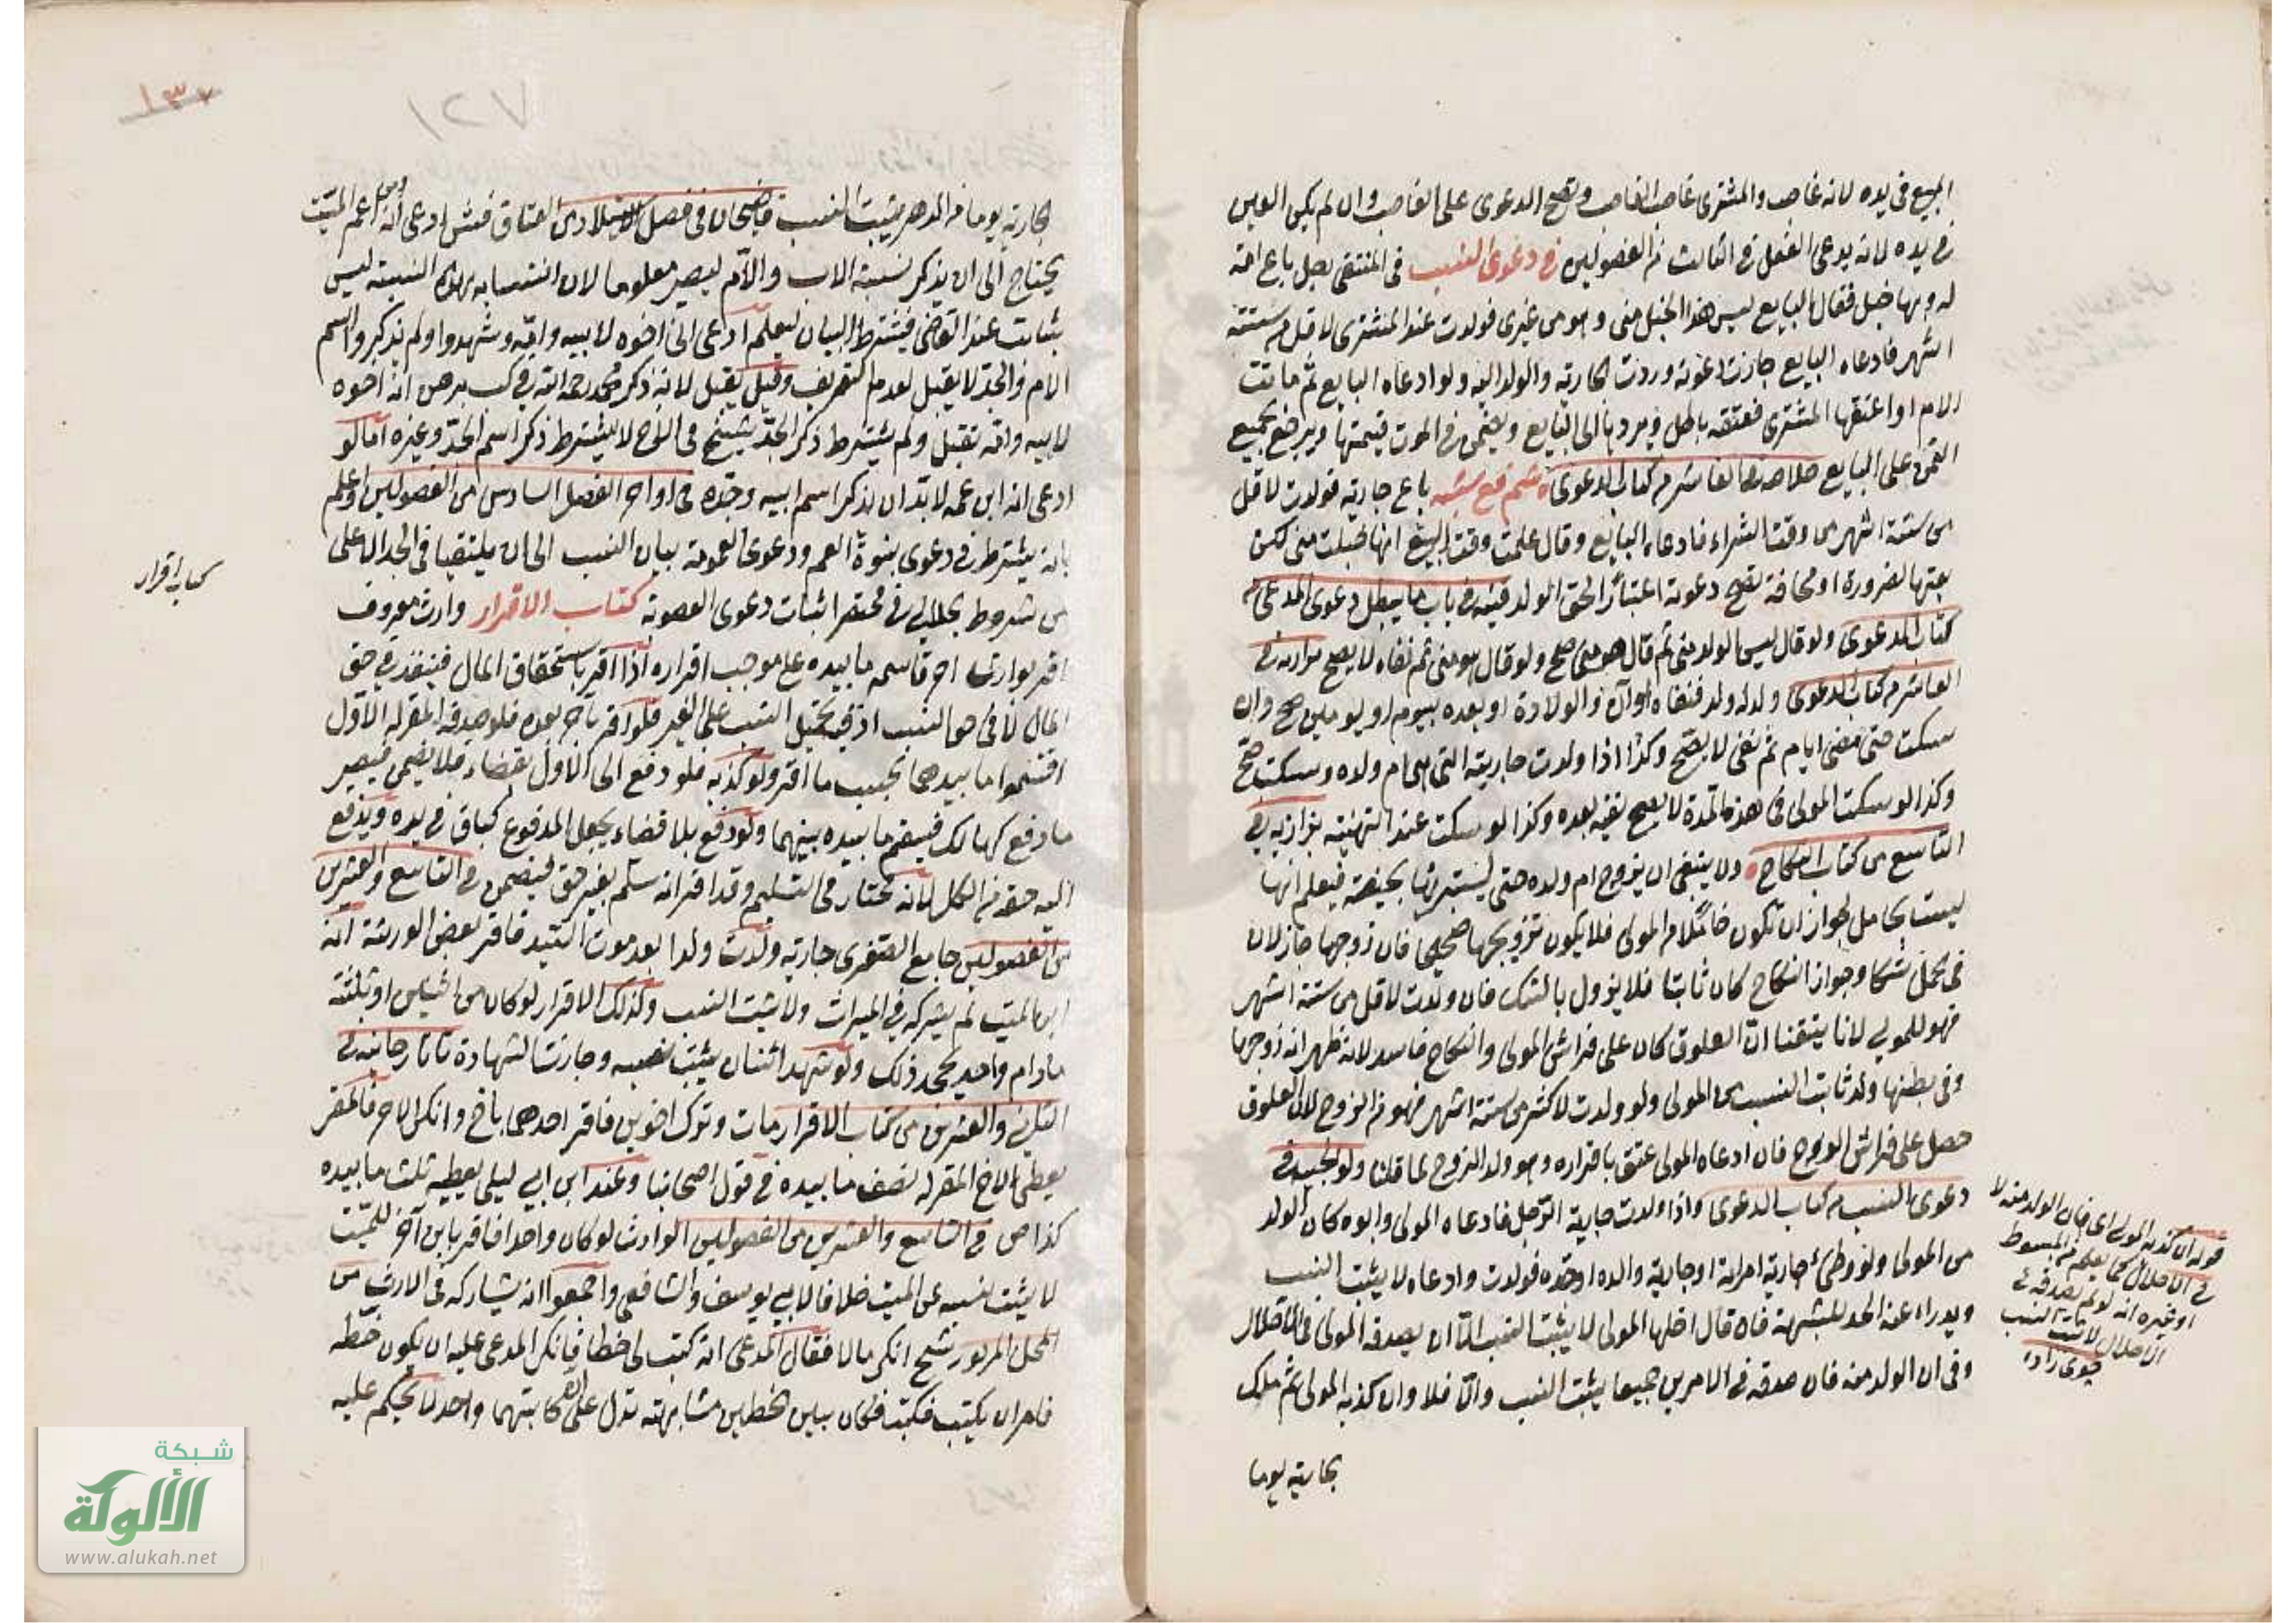 المبيع في يده لانه غاصب والمشترى غاصب الغاصب وتصح الدعوى على الغاصب وان لم يكن العين
في يده لانه يدعى الفعل في الثالث من الفصولين في دعوى النسب في المنتقى رجل باع امة
له وبها حبل فقال البايع ليس هذا الحبل منى وهو من غيرى فولدت عند المشترى لاقل من ستة
اشهر فادعاه البايع جازت دعوته وردت الجارية والولد اليه ولو ادعاه البايع ثم ماتت
الام او اعتقها المشترى فعتقه باطل ويردها الى البايع ويضمن في الموت قيمتها ويرجع بجميع
الثمن على البايع خلاصه في العاشر من كتاب الدعوى باع جارية فولدت لاقل
من ستة اشهر من وقت الشراء فادعاه البايع وقال علمت وقت البيع انها حبلت منى لكن
بعتها لضرورة او مخافة تصح دعوته اعتبارا لحق الولد قنيه في باب ما يبطل دعوى المدعى من
كتاب الدعوى ولو قال ليس الولد منى ثم قال هو منى صح ولو قال هو منى ثم نفاه لا يصح بزازيه في
العاشر من كتاب الدعوى ولد له ولد فنفاه اوان الولادة او بعده بيوم او يومين صح وان
سكت حتى مضى ايام ثم نفى لا يصح وكذا اذا ولدت جاريته التى هى ام ولده وسكت
وكذا لو سكت المولى في هذه المدة لا يصح نفيه بعده وكذا لو سكت عند التهنئة بزازيه في
التاسع من كتاب النكاح ولا ينبغى ان يزوج ام ولده حتى يستبرئها بحيضة فيعلم انها
ليست بحامل لجواز ان تكون حاملا من المولى فلا يكون تزويجها صحيحا فان زوجها جاز لان
في الحمل شكا وجواز النكاح كان ثابتا فلا يزول بالشك فان ولدت لاقل من ستة اشهر
فهو للمولى لانا تيقنا ان العلوق كان على فراش المولى والنكاح فاسد لانه ظهر انه زوجها
وفى بطنها ولد ثابت النسب من المولى ولو ولدت لاكثر من ستة اشهر فهو من الزوج لان العلوق
حصل على فراش الزوج فان ادعاه المولى عتق باقراره وهو ولد الزوج لما قلنا ولوالجيه في
دعوى النسب من كتاب الدعوى واذا ولدت جارية الرجل فادعاه المولى وابوه كان الولد
من المولى ولو وطئ جارية امراته او جارية والده او جده فولدت وادعاه لا يثبت النسب
ويدراء عنه الحد للشبهة فان قال احلها المولى لا يثبت النسب الا ان يصدقه المولى في الاحلال
وفى ان الولد منه فان صدقه في الامرين جميعا يثبت النسب والا فلا وان كذبه المولى ثم ملك
بجارية يوما
قوله وان كذبه المولى اى في ان الولد منه لا
في الاحلال كما يعلم من المبسوط
وغيره انه لو لم يصدقه في
الاحلال لا يثبت النسب
جوى زاده
١٣٧
٧٢١
جارية يوما من الدهر يثبت النسب قاضيخان في فصل الاستيلاد من العتاق فتش ادعى انه عم الميت
يحتاج الى ان يذكر نسبة الاب والام ليصير معلوما لان انتسابه بهذه النسبة ليس
بثابت عند القاضى فيشترط البيان ليعلم ادعى انى اخوه لابيه وامه وشهدوا ولم يذكروا اسم
الام والجد لا يقبل لعدم التعريف وقيل يقبل لانه ذكر محمد رحمه الله في ك برهن انه اخوه
لابيه وامه تقبل ولم يشترط ذكر الجد شيخ في الاخ لا يشترط ذكر اسم الجد وغيره اما لو
ادعى انه ابن عمه لا بد ان يذكر اسم ابيه وجده في اواخر الفصل السادس من الفصولين اعلم
بانه يشترط في دعوى بنوة العم ودعوى العمومة بيان النسب الى ان يلتقيا في الجد الاعلى
من شروط الحلبى في محضر اثبات دعوى العصوبة كتاب الاقرار وارث معروف
اقر بوارث اخر قاسمه ما بيده على موجب اقراره اذا اقر باستحقاق المال فينفذ في حق
المال لا في حق النسب اذ فيه تحميل النسب على الغير فلو اقر باخر بعده فلو صدقه المقر له الاول
اقتسموا ما بيدهما بحسب ما اقر ولو كذبه فلو دفع الى الاول بقضاء فلا يضمن فيصير
ما دفع كهالك فيقسم ما بيده بينهما ولو دفع بلا قضاء يجعل المدفوع كباق في يده ويدفع
اليه حقه من الكل لانه مختار في التسليم وقد اقر انه سلم بغير حق فيضمن في التاسع والعشرين
من الفصولين جامع الصغرى جارية ولدت ولدا بعد موت السيد فاقر بعض الورثة انه
ابن الميت لم يشركه في الميراث ولا يثبت النسب وكذلك الاقرار لو كان من اثنين او ثلثة
مادام واحد يجحد ذلك ولو شهد اثنان يثبت نصيبه وجازت الشهادة تاتارخانيه في
الثانى والعشرين من كتاب الاقرار مات وترك اخوين فاقر احدهما باخ وانكر الاخر فالمقر
يعطى الاخ المقر له نصف ما بيده في قول اصحابنا وعند ابن ابى ليلى يعطيه ثلث ما بيده
كذا ص في التاسع والعشرين من الفصولين الوارث لو كان واحدا فاقر بابن آخر للميت
لا يثبت نسبه عن الميت خلافا لابى يوسف والشافعى واجمعوا انه يشاركه في الارث من
المحل المزبور شيخ انكر مالا فقال المدعى انه كتب لى خطا فانكر المدعى عليه ان يكون خطه
فامر ان يكتب فكتب فكان بين الخطين مشابهة تدل على ان كاتبهما واحد لا يحكم عليه
كتاب اقرار
شبكة
الألوكة
www.alukah.net